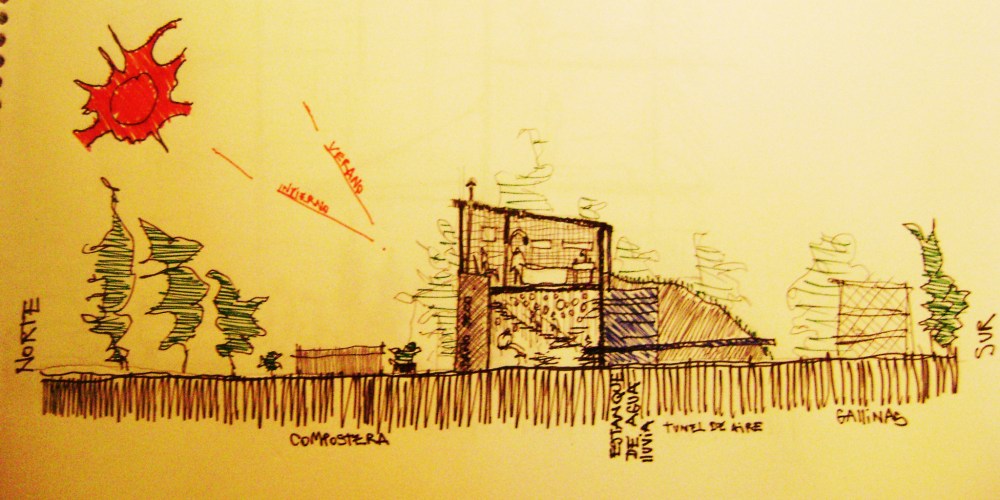 VERANO
INVIERNO
NORTE
SUR
COMPOSTERA
ESTANQUE
DE AGUA
lluvia
TUNEL DE AIRE
GALLINAS